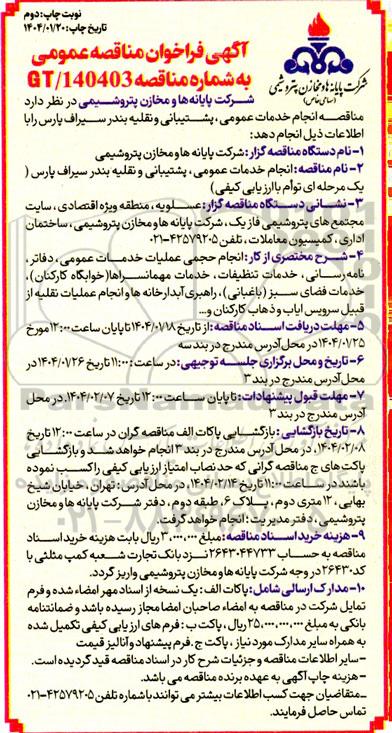 نوبت چاپ: دوم
تاریخ چاپ: ۱۴۰۴/۰۱/۲۰
آگهی فراخوان مناقصه عمومی
به شماره مناقصه GT/140403
شرکت پایانه ها و مخازن پتروشیمی
(سهامی خاص)
شرکت پایانه ها و مخازن پتروشیمی در نظر دارد
مناقصه انجام خدمات عمومی، پشتیبانی و نقلیه بندر سیراف پارس را با
اطلاعات ذیل انجام دهد:
۱- نام دستگاه مناقصه گزار: شرکت پایانه ها و مخازن پتروشیمی
۲- نام مناقصه: انجام خدمات عمومی، پشتیبانی و نقلیه بندر سیراف پارس (
یک مرحله ای توأم با ارزیابی کیفی)
۳- نشانی دستگاه مناقصه گزار: عسلویه، منطقه ویژه اقتصادی، سایت
مجتمع های پتروشیمی فاز یک، شرکت پایانه ها و مخازن پتروشیمی، ساختمان
اداری، کمیسیون معاملات، تلفن ۴۲۵۷۹۲۰۵-۰۲۱
۴- شرح مختصری از کار: انجام حجمی عملیات خدمات عمومی، دفاتر،
نامه رسانی، خدمات تنظیفات، خدمات مهمانسراها(خوابگاه کارکنان)،
خدمات فضای سبز (باغبانی)، راهبری آبدارخانه ها و انجام عملیات نقلیه از
قبیل سرویس ایاب و ذهاب کارکنان و...
۵- مهلت دریافت اسناد مناقصه: از تاریخ ۱۴۰۴/۰۱/۱۸ تا پایان ساعت ۱۲:۰۰ مورخ
۱۴۰۴/۰۱/۲۵ در محل آدرس مندرج در بند سه
۶- تاریخ و محل برگزاری جلسه توجیهی: در ساعت: ۱۱:۰۰ تاریخ ۱۴۰۴/۰۱/۲۶ در
محل آدرس مندرج در بند ۳
۷- مهلت قبول پیشنهادات: تا پایان ساعت ۱۲:۰۰ تاریخ ۱۴۰۴/۰۲/۰۷. در محل
آدرس مندرج در بند ۳
۸- تاریخ بازگشایی: بازگشایی پاکات الف مناقصه گران در ساعت ۱۲:۰۰ تاریخ
۱۴۰۴/۰۲/۰۸. در محل آدرس مندرج در بند ۳ انجام خواهد شد و بازگشایی
پاکت های ج مناقصه گرانی که حد نصاب امتیاز ارزیابی کیفی را کسب نموده
باشند در ساعت: ۱۱:۰۰ تاریخ ۱۴۰۴/۰۲/۱۴ در محل آدرس: تهران، خیابان شیخ
بهایی، ۱۲ متری دوم، پلاک ۶، طبقه دوم، دفتر شرکت پایانه ها و مخازن
پتروشیمی، دفتر مدیریت؛ انجام خواهد گرفت.
۹- هزینه خرید اسناد مناقصه: مبلغ ۳,۰۰۰,۰۰۰ ریال بابت هزینه خرید اسناد
مناقصه به حساب ۲۶۴۳۰۴۴۷۳۳ نزد بانک تجارت شعبه کمپ مثلثی با
کد ۲۶۴۳۰ در وجه شرکت پایانه ها و مخازن پتروشیمی واریز گردد.
۱۰- مدارک ارسالی شامل: پاکات الف: یک نسخه از اسناد مهر امضاء شده و فرم
تمایل شرکت در مناقصه به امضاء صاحبان امضا مجاز رسیده باشد و ضمانتنامه
بانکی به مبلغ ۲۵,۰۰۰,۰۰۰,۰۰۰ ریال، پاکت ب: فرم های ارزیابی کیفی تکمیل شده
به همراه سایر مدارک مورد نیاز، پاکت ج. فرم پیشنهاد و آنالیز قیمت
- سایر اطلاعات مناقصه و جزئیات شرح کار در اسناد مناقصه قید گردیده است.
- هزینه چاپ آگهی به عهده برنده مناقصه می باشد.
- متقاضیان جهت کسب اطلاعات بیشتر می توانند با شماره تلفن ۴۲۵۷۹۲۰۵-۰۲۱
تماس حاصل فرمایند.